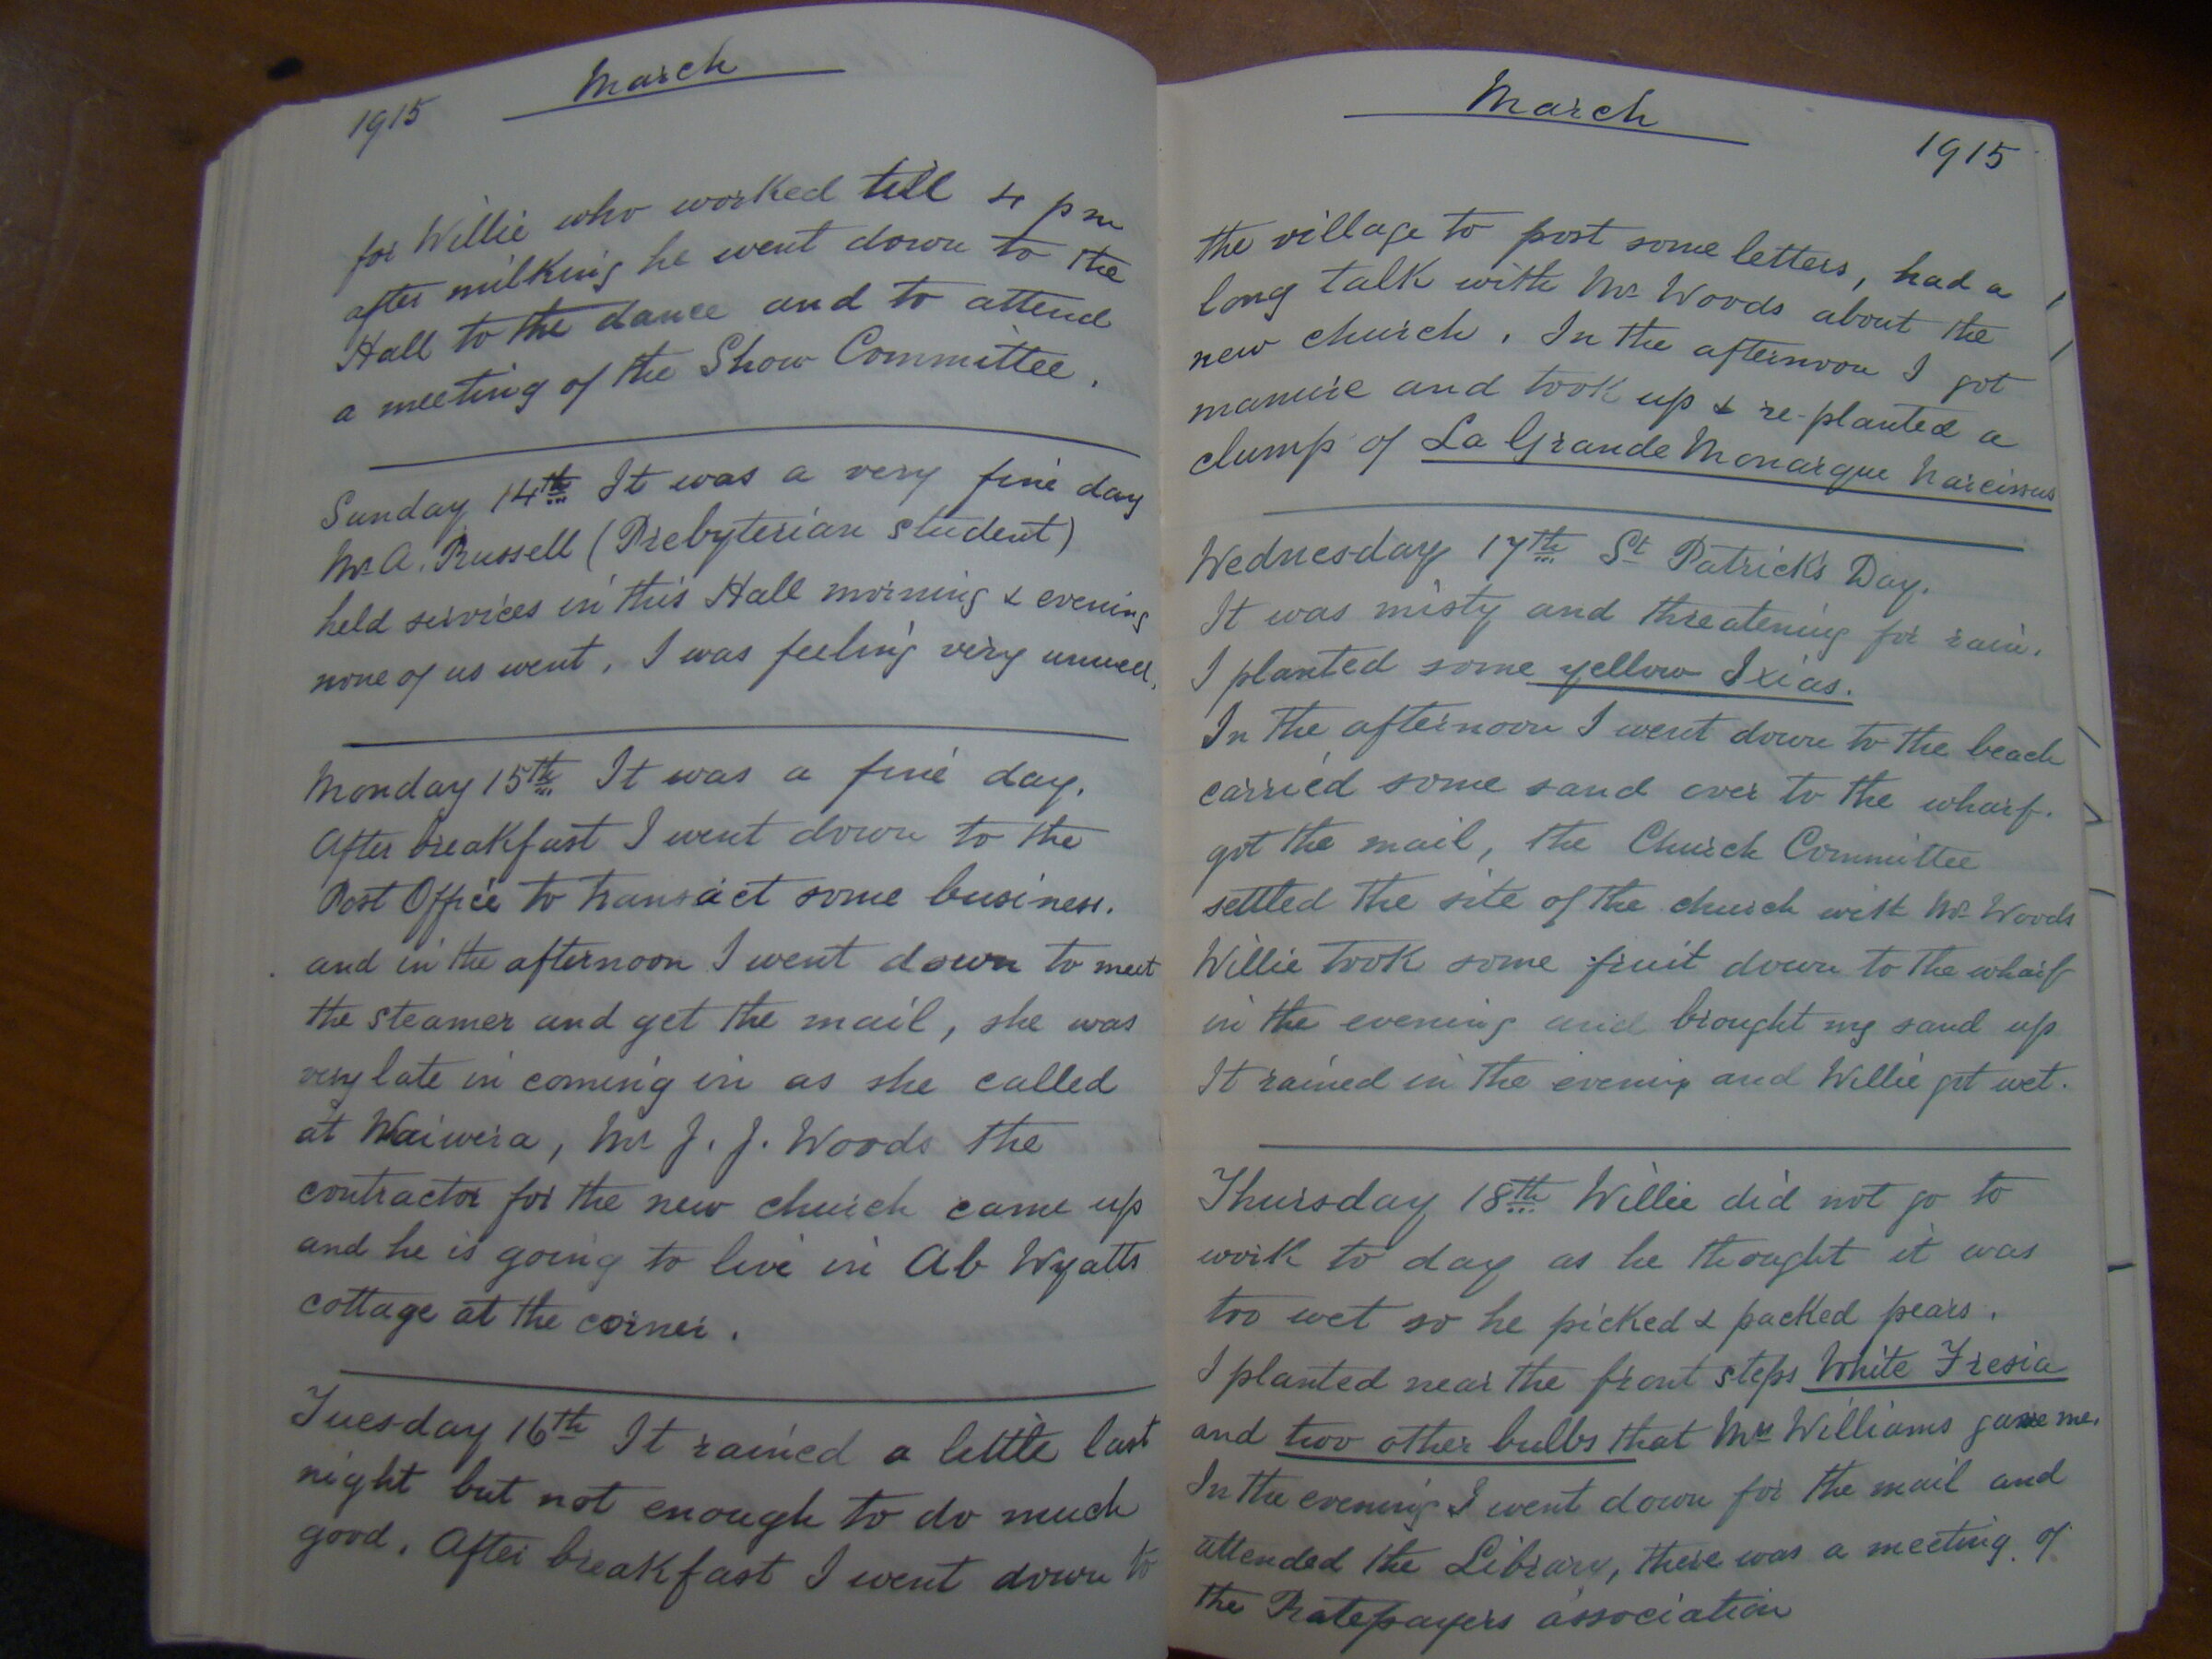 1915
March
for Willie who worked till 4 pm
after milking he went down to the
Hall to the dance and to attend
a meeting of the Show Committee.
Sunday 14th It was a very fine day
Mr A. Russell (Presbyterian student)
held services in this Hall morning & evening
none of us went, I was feeling very unwell.
Monday 15th It was a fine day.
After breakfast I went down to the
Post Office to transact some business.
and in the afternoon I went down to meet
the steamer and get the mail, she was
very late in coming in as she called
at Waiwera, Mr J. J. Woods the
contractor for the new church came up
and he is going to live in Ab Wyatts
cottage at the corner.
Tuesday 16th It rained a little last
night but not enough to do much
good. After breakfast I went down to
March
1915
the village to post some letters, had a
long talk with Mr Woods about the
new church. In the afternoon I got
manure and took up & re-planted a
clump of La Grande Monarque Narcissus
Wednesday 17th St Patricks Day.
It was misty and threatening for rain.
I planted some yellow Ixias.
In the afternoon I went down to the beach
carried some sand over to the wharf.
got the mail, the Church Committee
settled the site of the church with Mr Woods
Willie took some fruit down to the wharf
in the evening and brought my sand up
It rained in the evening and Willie got wet.
Thursday 18th Willie did not go to
work to day as he thought it was
too wet so he picked & packed pears.
I planted near the front steps White Fresia
and two other bulbs that Mrs Williams gave me.
In the evening I went down for the mail and
attended the Library, there was a meeting of
the Ratepayers association